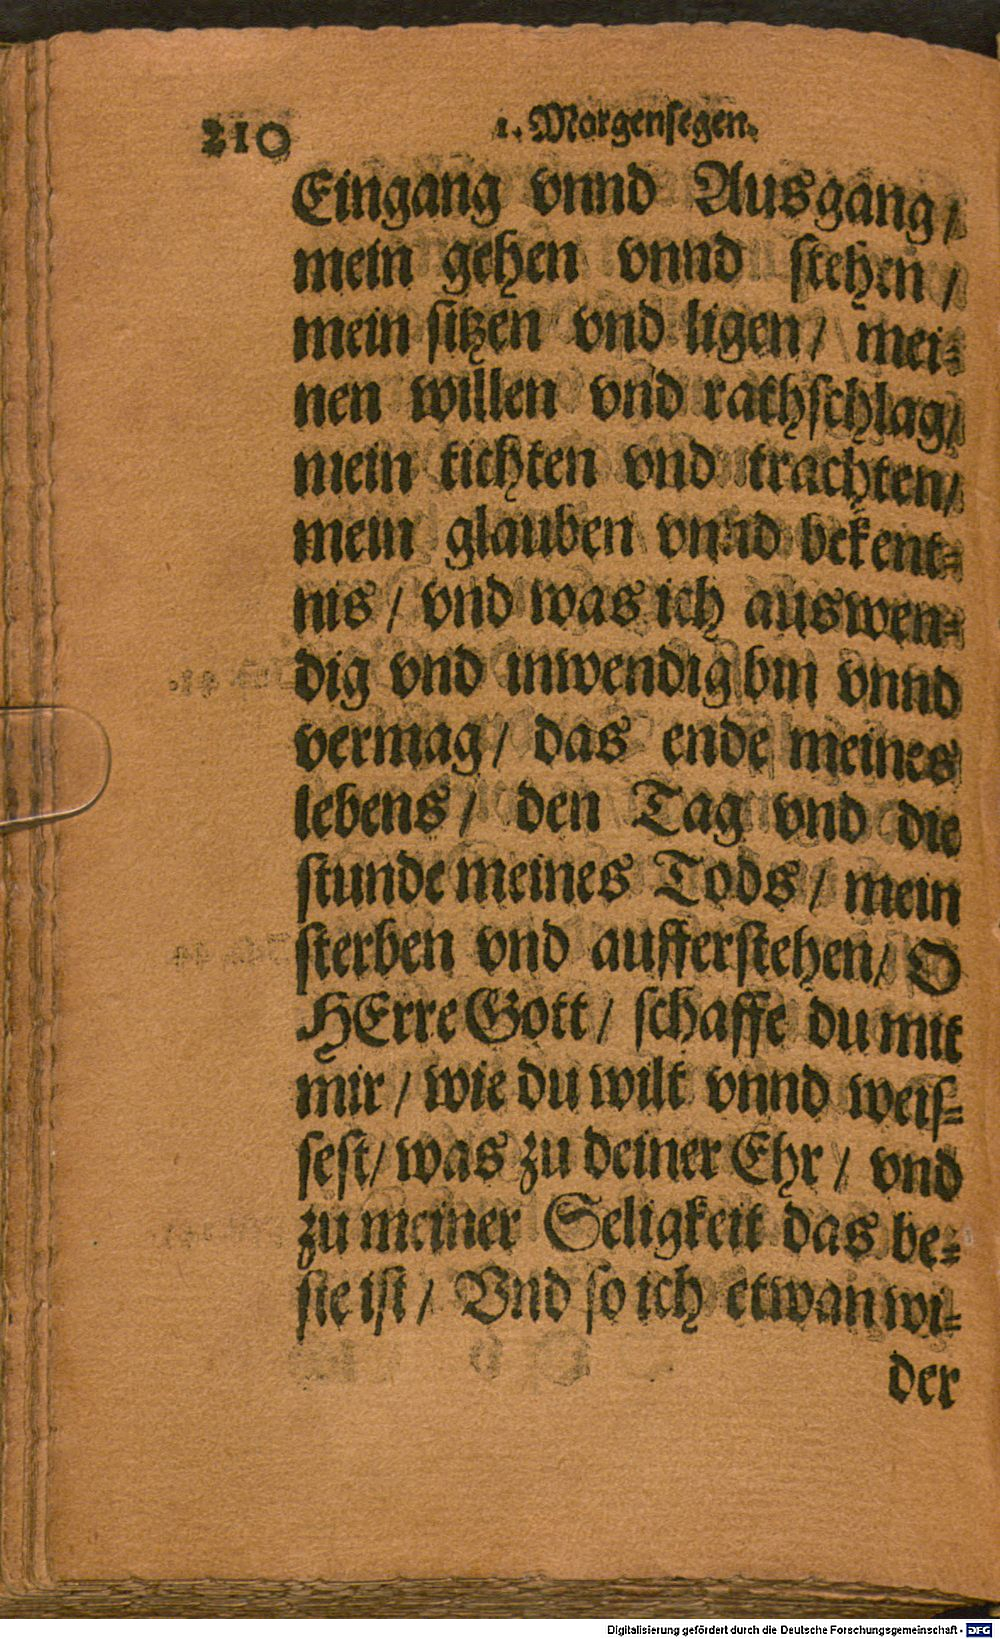 210 1. Morgensegen.
Eingang vnnd Ausgang /
mein gehen vnnd stehen /
mein sitzen vnd ligen / mei-
nen willen vnd rathschlag /
mein tichten vnd trachten /
mein glauben vnnd bekent-
nis / vnd was ich auswen-
dig vnd inwendig bin vnnd
vermag / das ende meines
lebens / den Tag vnd die
stunde meines Tods / mein
sterben vnd aufferstehen / O
HErre Gott / schaffe du mit
mir / wie du wilt vnnd weis-
sest / was zu deiner Ehr / vnd
zu meiner Seligkeit das be-
ste ist / Vnd so ich etwan wi-
der
Digitalisierung gefördert durch die Deutsche Forschungsgemeinschaft - DFG